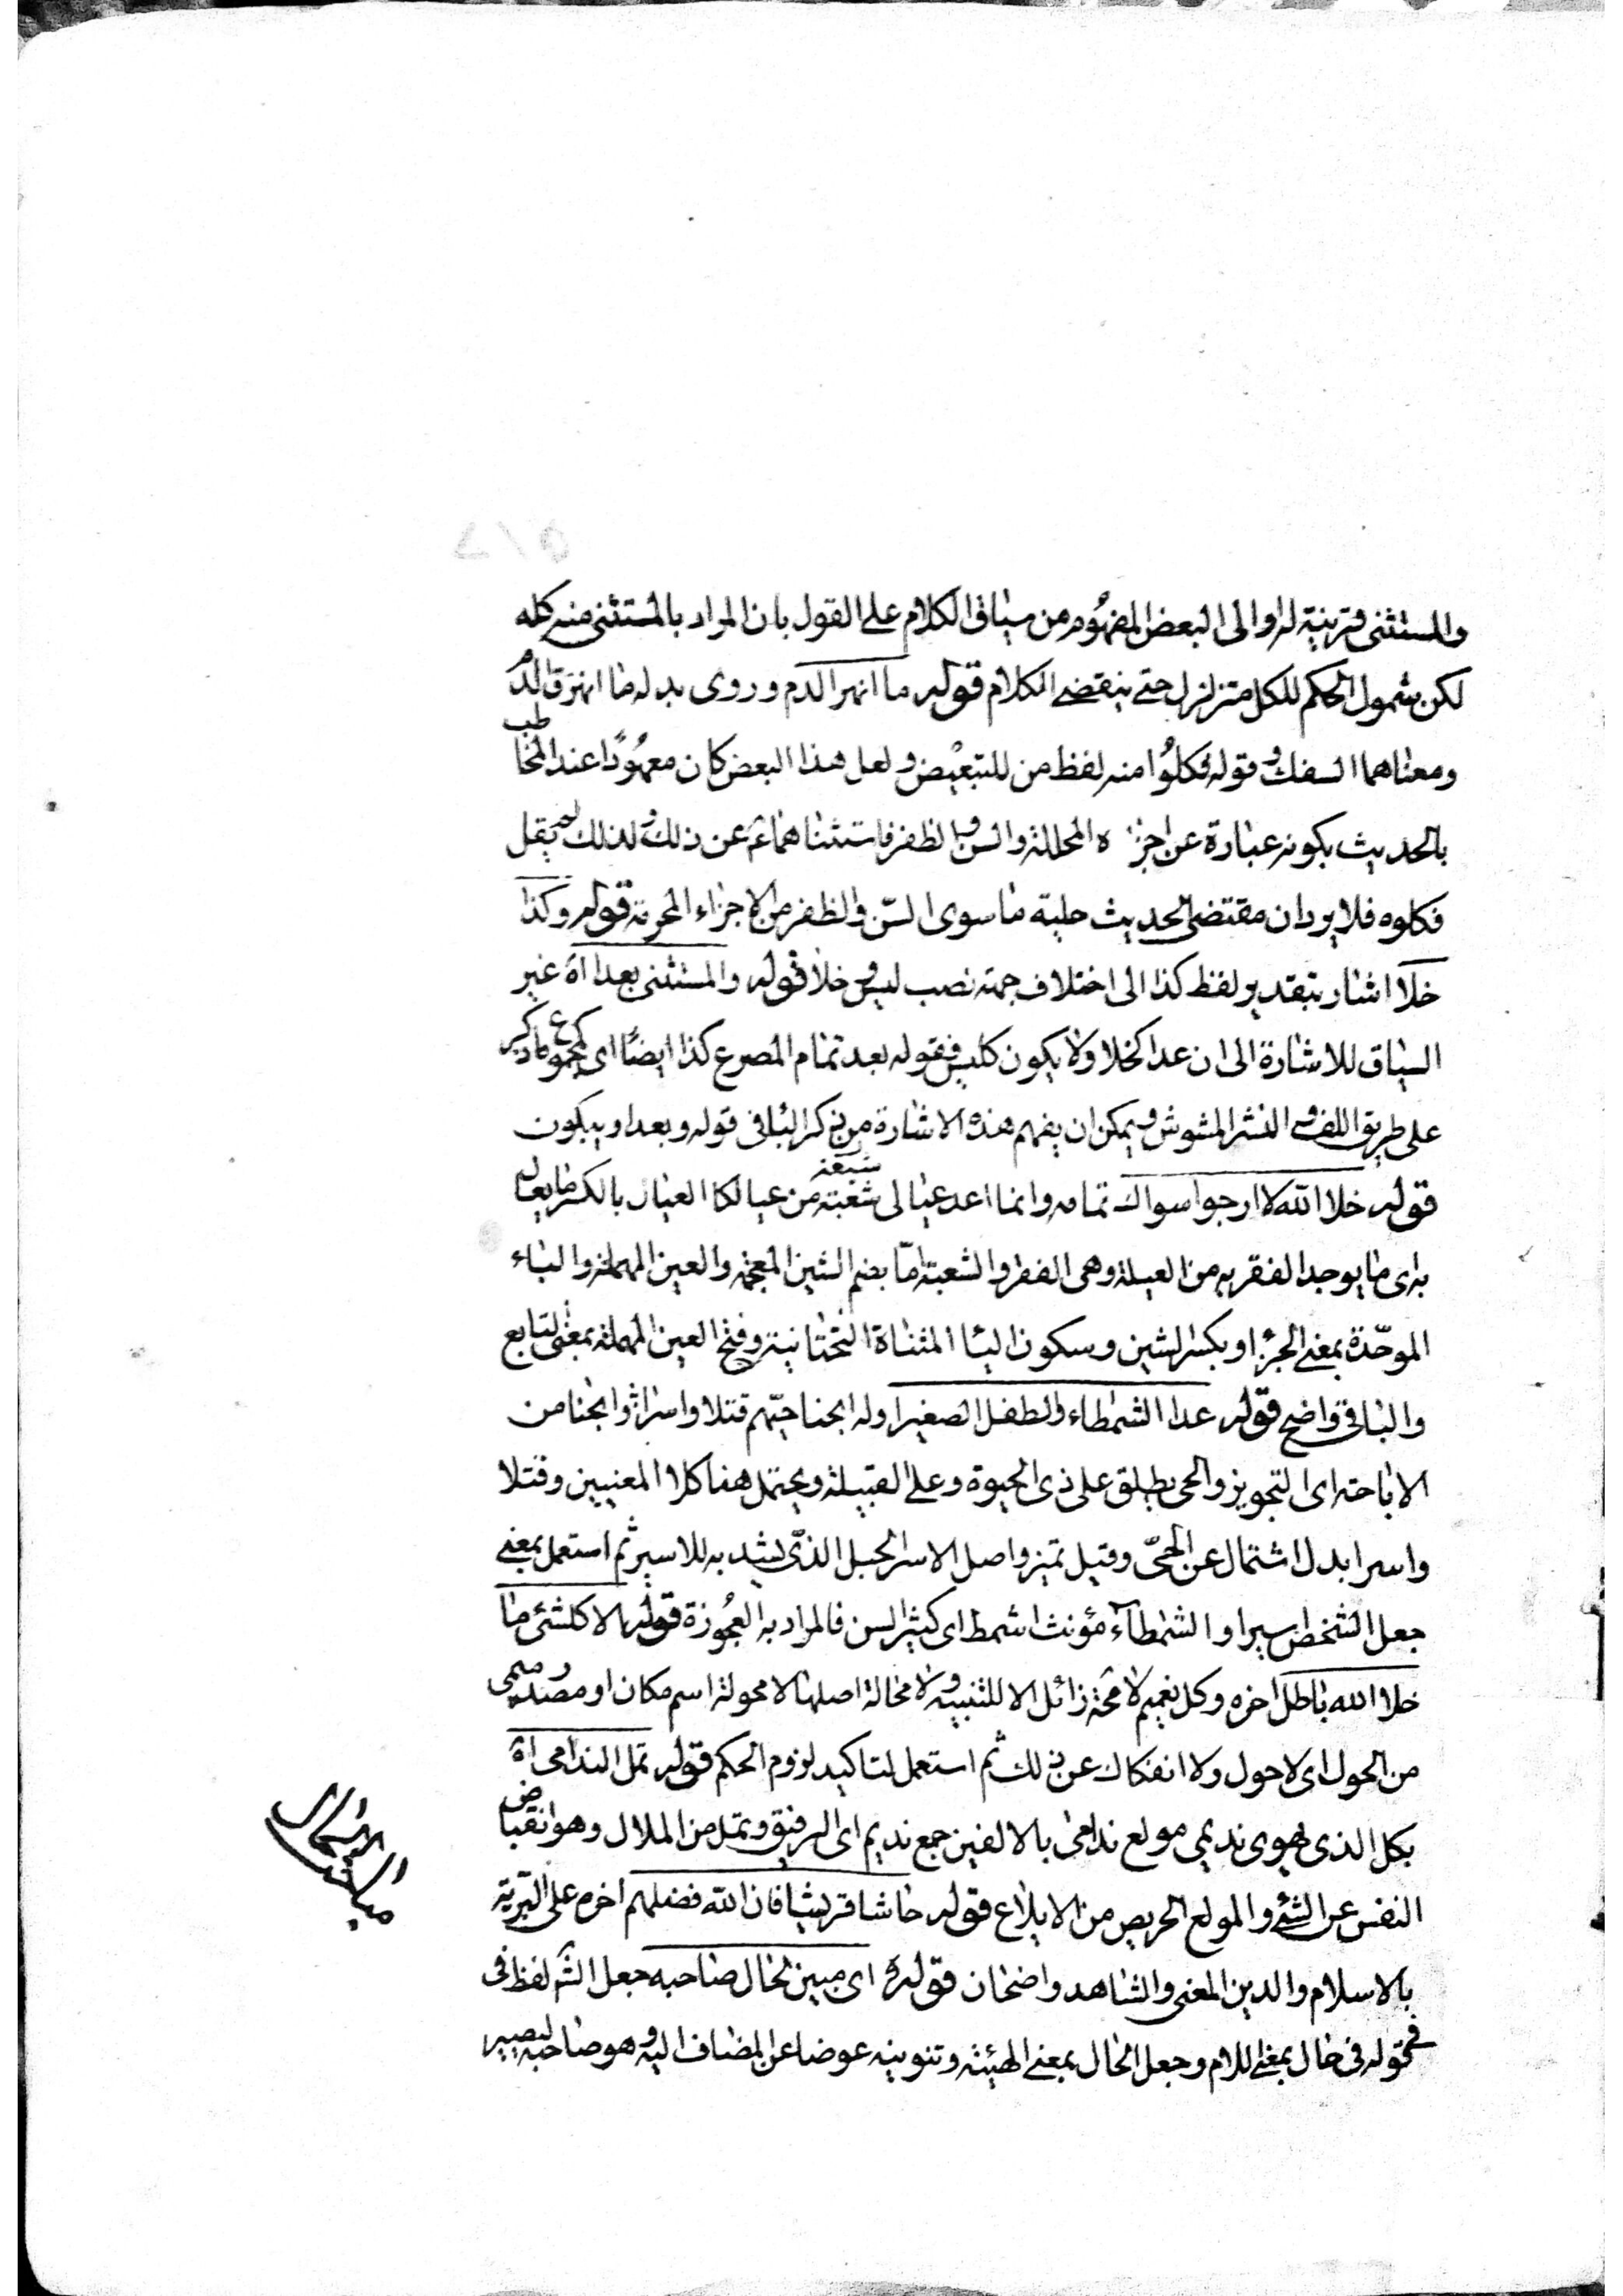 والمستثنى قرينة له او الى البعض المفهوم من سياق الكلام على القول بان المراد بالمستثنى منه كله
لكن شمول الحكم للكل متزلزل حتى ينقضى الكلام قوله ما انهر الدم وروى بدله ما انهزق الدم
ومعناهما السفك وقوله فكلوا منه لفظ من للتبعيض ولعل هذا البعض كان معهودا عند المخاطب
بالحديث بكونه عبارة عن اجزائه المحللة والسن والظفر فاستثناهما عن ذلك ولذلك لم يقل
فكلوه فلا يرد ان مقتضى الحديث حلية ما سوى السن والظفر من الاجزاء المحرمة قوله وكذا
خلا اشار بتقدير لفظ كذا الى اختلاف جهة نصب ليس وخلا قوله والمستثنى بعدا اه غير
السياق للاشارة الى ان عدا كخلا ولا يكون كليس فقوله بعد تمام المصرع كذا ايضا اى كمجموع ما ذكر
على طريق اللف والنشر المشوش ويمكن ان يفهم هذه الاشارة من ذكر الباء فى قوله وبعدا وبيكون
قوله خلا الله لا ارجوا سواك تمامه وانما اعد عيالى شعبة من عيالكا العيال بالكسر ما يعال
شيعة
به اى ما يوجد الفقر به من العيلة وهى الفقر والشعبة اما بضم الشين المعجمة والعين المهملة والباء
الموحدة بمعنى الجزء او بكسر الشين وسكون الياء المثناة التحتانية وفتح العين المهملة بمعنى التابع
والباقى واضح قوله عدا الشمطاء والطفل الصغير اوله ابحنا حيهم قتلا واسرا وابحنا من
الاباحة اى التجويز والحى يطلق على ذى الحيوة وعلى القبيلة ويحتمل هنا كلا المعنيين وقتلا
واسرا بدل اشتمال عن الحى وقيل تميز واصل الاسر الحبل الذى يشد به للاسير ثم استعمل بمعنى
جعل الشخص اسيرا والشمطاء مؤنث اشمط اى كثير السن فالمراد به العجوزة قوله الا كلشئ ما
خلا الله باطل اخره وكل نعيم لا محة زائل الا للتنبيه ولا محالة اصلها لا محولة اسم مكان او مصدر ميمى
من الحول اى لا حول ولا انفكاك عن ذلك ثم استعمل لتاكيد لزوم الحكم قوله تمل الندامى اه
بكل الذى يهوى نديمى مولع ندامى بالالفين جمع نديم اى الرفيق وتمل من الملال وهو انقباض
النفس عن الشئ والمولع الحريص من الايلاع قوله حاشا قريشا فان الله فضلهم اخره على البرية
بالاسلام والدين المعنى والشاهد واضحان قوله اى مبين لحال صاحبه جعل الش لفظ فى
فى قوله فى حال بمعنى اللام وجعل الحال بمعنى الهيئة وتنوينه عوضا عن المضاف اليه وهو صاحبه ليصير